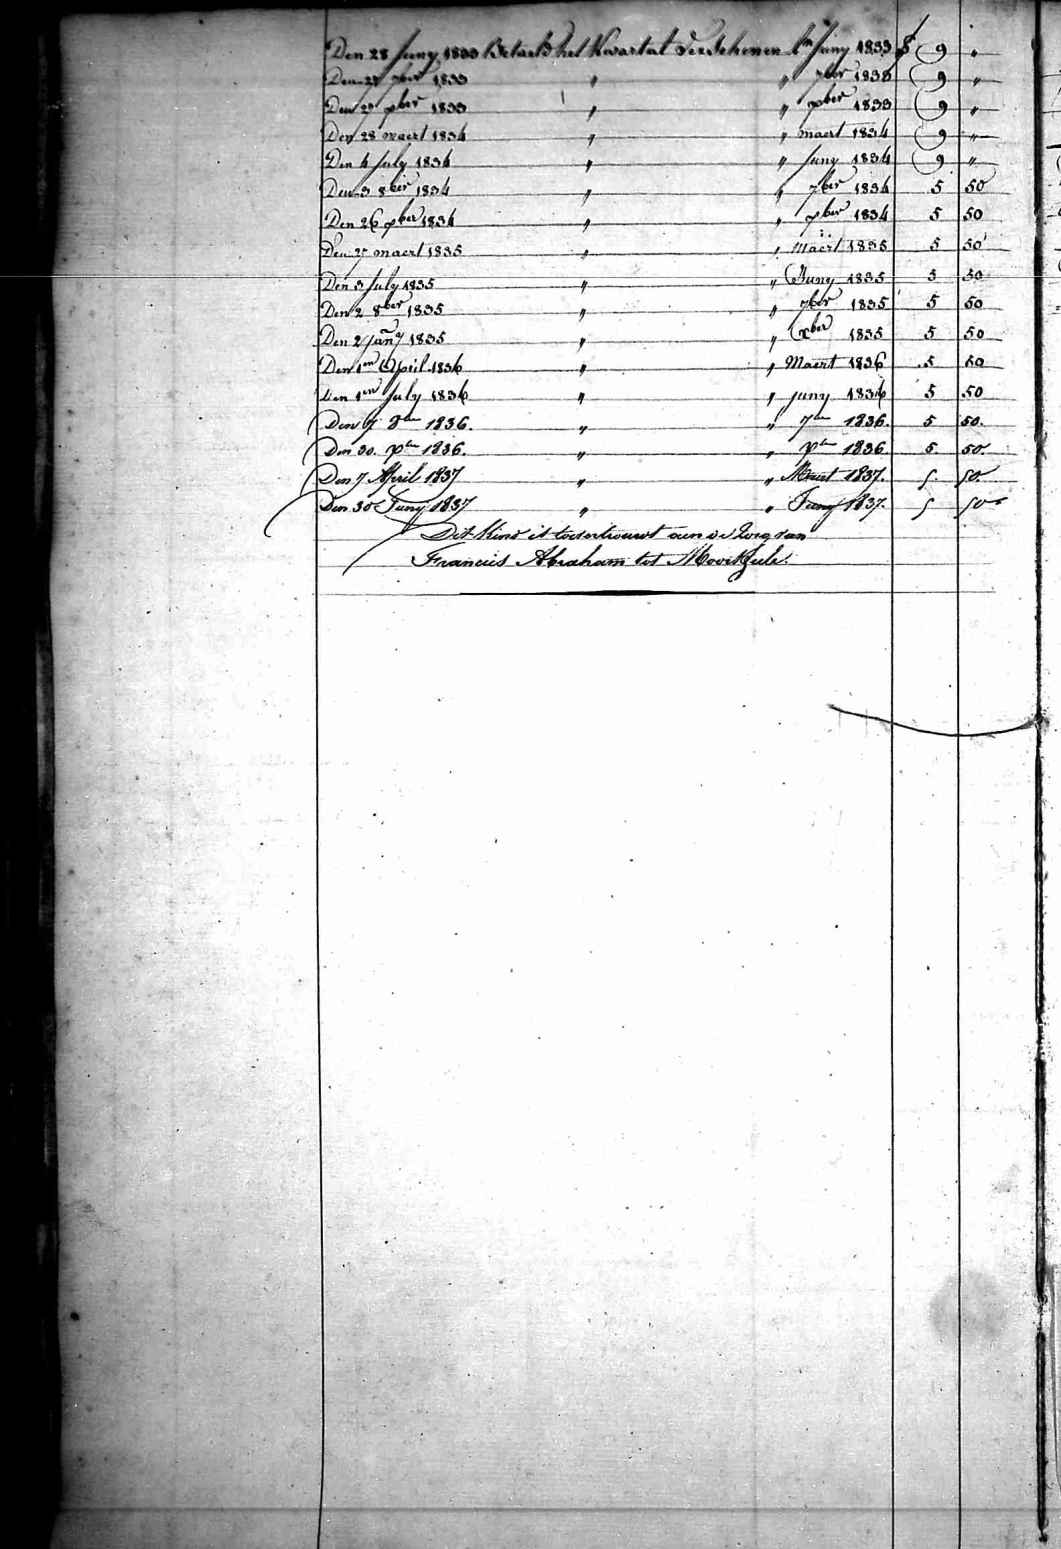 Den 28 Juny 1833 Betaeld het Kwartal verschenen den Juny 1833 f 9 "
Den 27 7ber 1833 " " 7ber 1833 9 "
Den 27 xber 1833 " " xber 1833 9 "
Den 28 maert 1834 " " maert 1834 9 "
Den 4 July 1834 " " Juny 1834 9 "
Den 3 8ber 1834 " " 7ber 1834 5 50
Den 26 xber 1834 " " xber 1834 5 50
Den 27 maert 1835 " " maert 1835 5 50
Den 3 July 1835 " " Juny 1835 5 50
Den 2 8ber 1835 " " 7ber 1835 5 50
Den 2 jany 1835 " " xber 1835 5 50
Den 1en April 1836 " " Maert 1836 5 50
den 1en July 1836 " " juny 1836 5 50
Den 7 8ber 1836. " " 7ber 1836. 5 50.
Den 30. xber 1836. " " xber 1836 5 50.
Den 7 April 1837 " " Maert 1837. 5. 50.
Den 30 Juny 1837 " " Juny 1837. 5 50
Dit Kind is toevertrouwt aen de Zorg van
Francies Abraham tot Moorzeele.